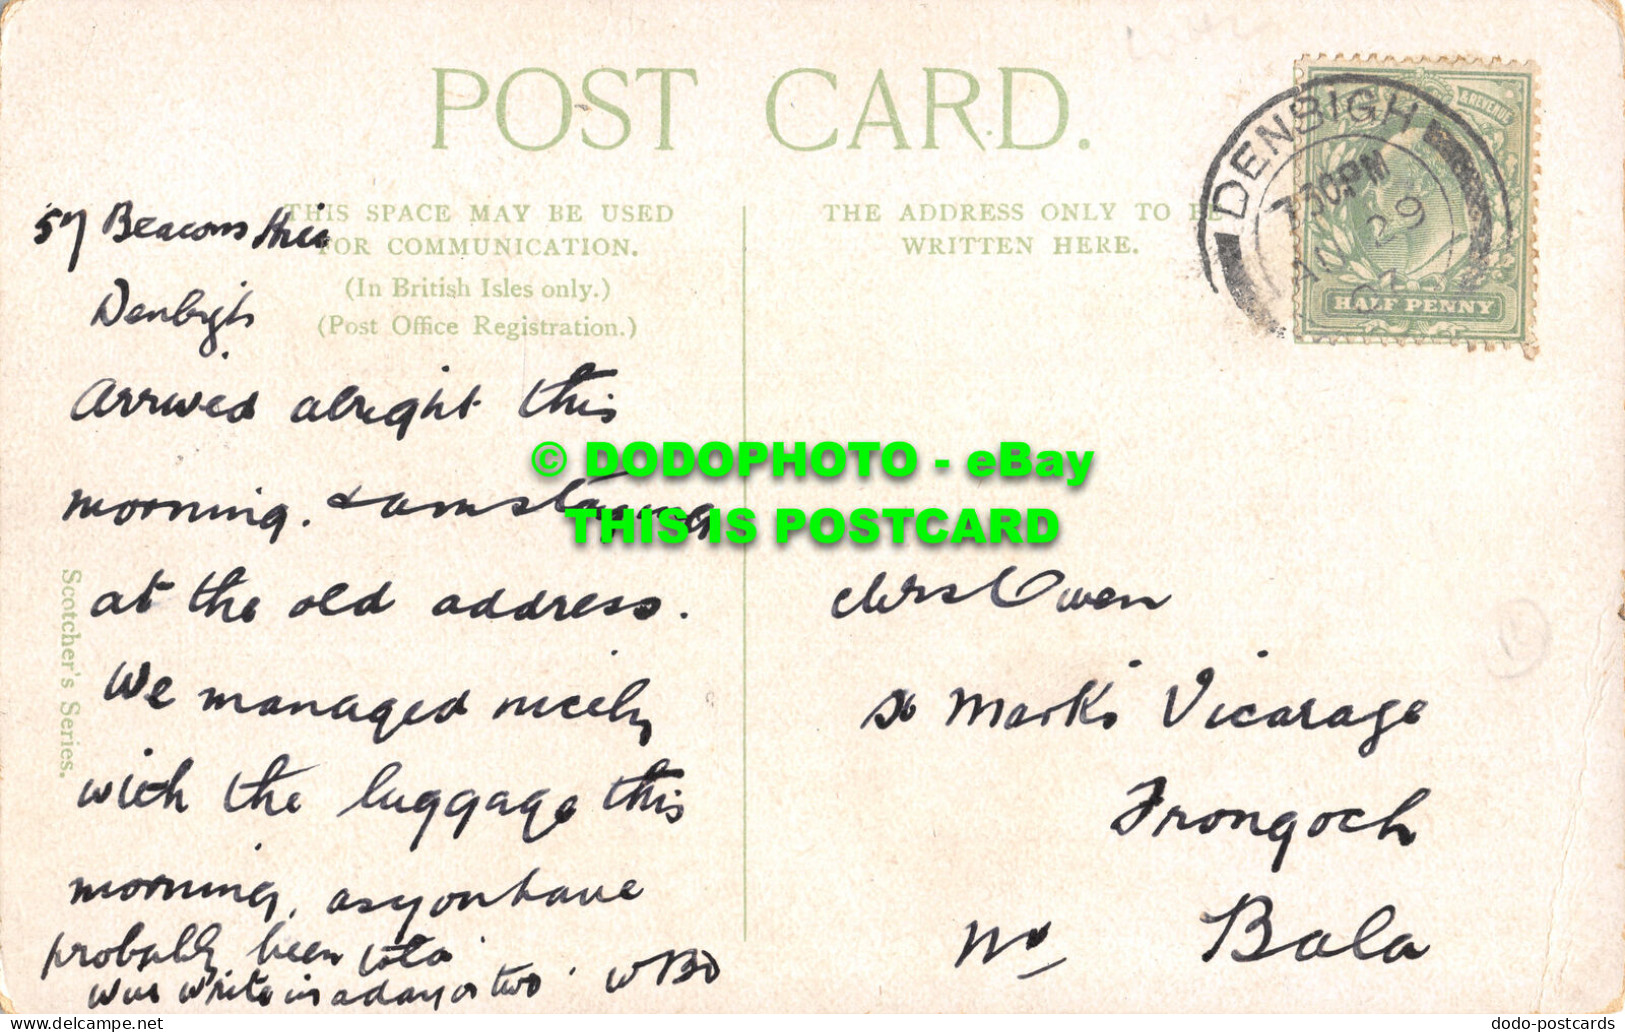 POST CARD.
THIS SPACE MAY BE USED
FOR COMMUNICATION.
(In British Isles only.)
(Post Office Registration.)
THE ADDRESS ONLY TO BE
WRITTEN HERE.
57 Beacons
Denbigh
Arrived alright this
morning. & am staying
at the old address.
We managed nicely
with the luggage this
morning, as you have
probably been told
write in a day or two
Scotcher's Series.
Mrs Owen
Marks Vicarage
Frongoch
Nr Bala
DENBIGH
7 30 PM
29
& REVENUE
HALF PENNY
© DODOPHOTO - eBay
THIS IS POSTCARD
dodo-postcards
www.delcampe.net